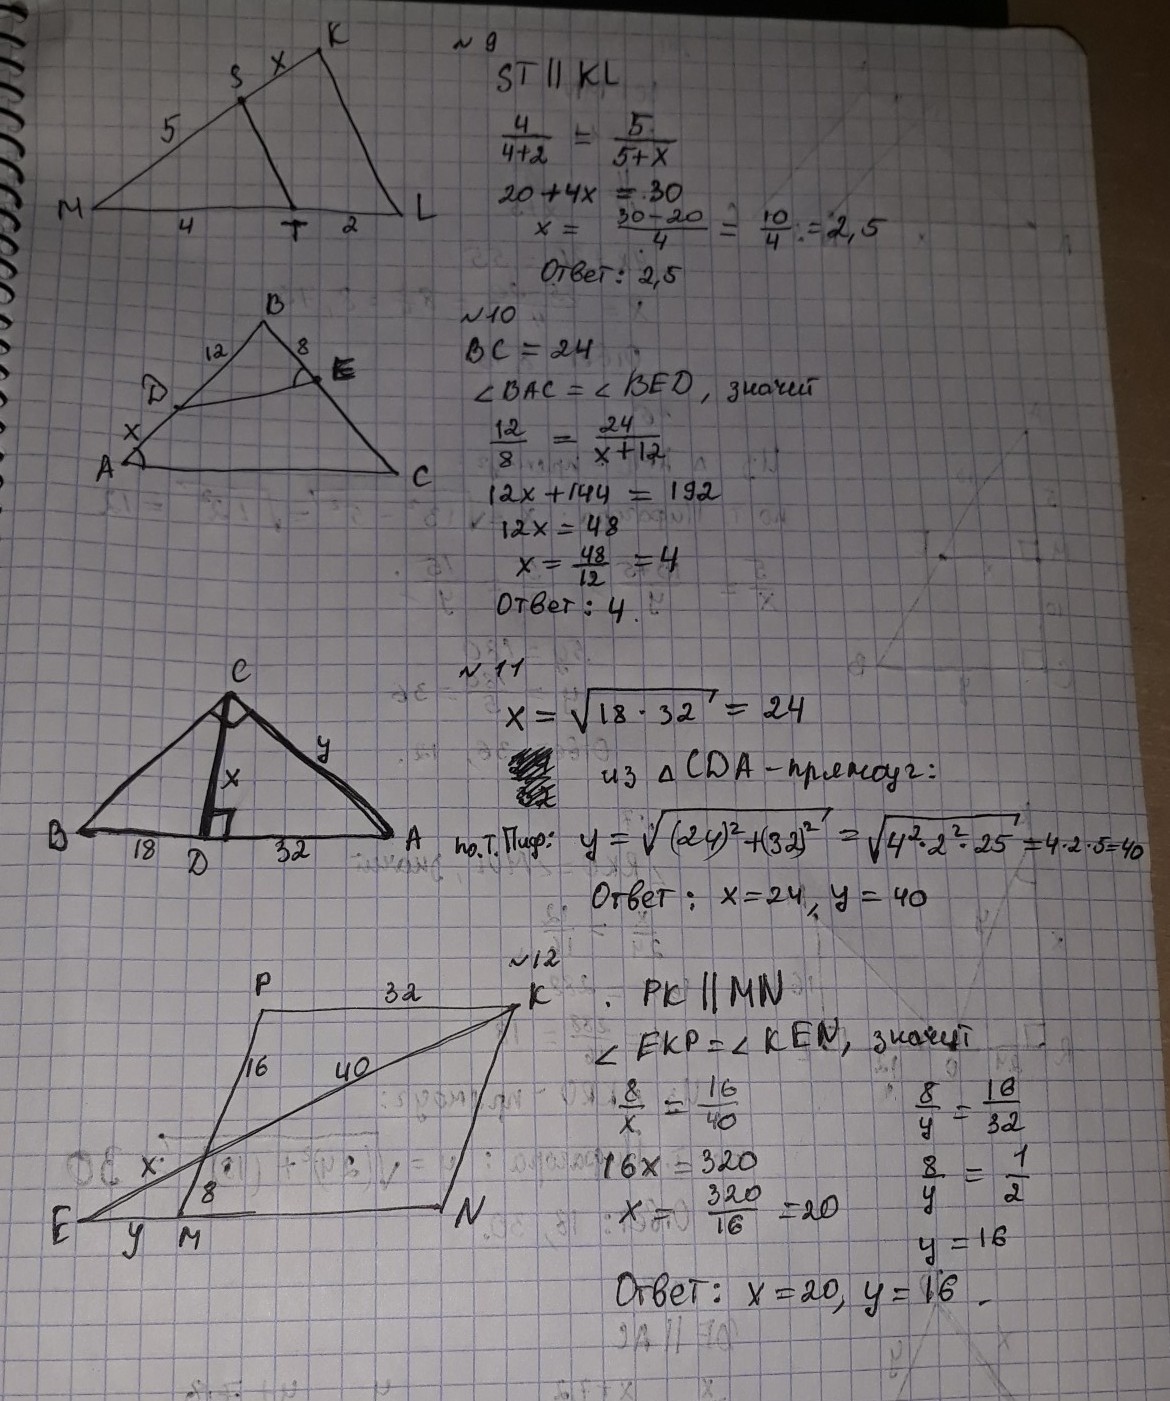 K
S
x
5
M
4
T
2
L
~ 9
ST || KL
4/(4+2) = 5/(5+x)
20+4x = 30
x = (30-20)/4 = 10/4 = 2,5
Ответ: 2,5
B
12
8
D
E
x
A
C
~10
BC = 24
∠BAC = ∠BED, значит
12/8 = 24/(x+12)
12x+144 = 192
12x = 48
x = 48/12 = 4
Ответ: 4.
C
y
x
B
18
D
32
A
~11
x = √(18·32) = 24
из △CDA - прямоуг:
по.Т.Пиф: y = √((24)²+(32)²) = √(4²·2²·25) = 4·2·5=40
Ответ: x=24, y = 40
P
32
K
16
40
x
8
E
y
M
N
~12
PK || MN
∠EKP = ∠KEN, значит
8/x = 16/40
16x = 320
x = 320/16 = 20
8/y = 16/32
8/y = 1/2
y = 16
Ответ: x = 20, y = 16.